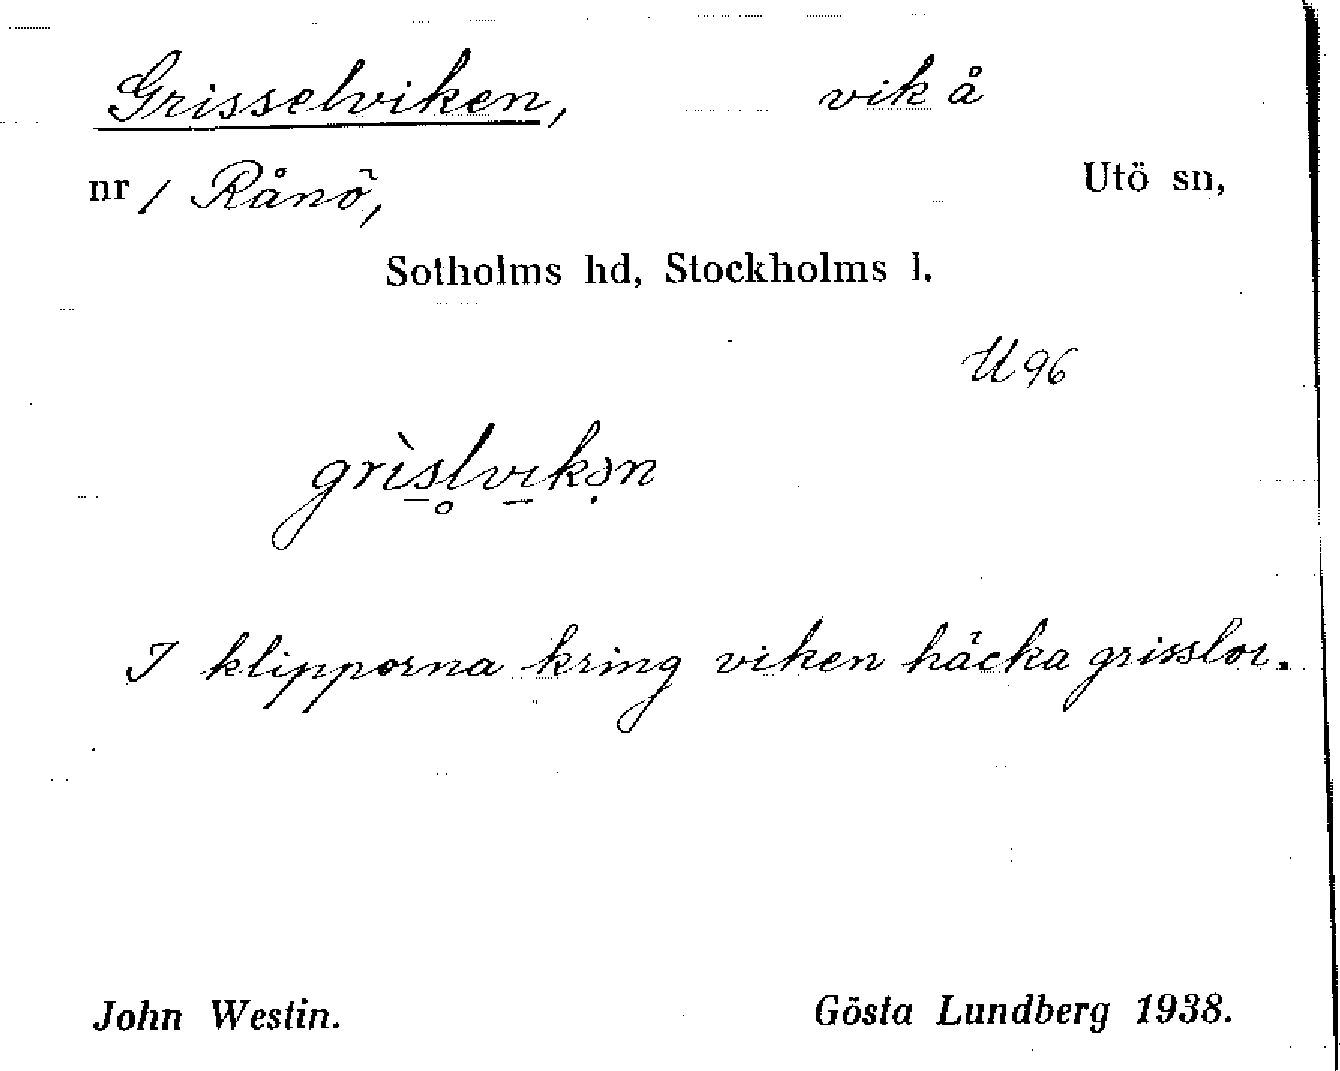 Grisselviken, vik å
nr 1 Rånö, Utö sn,
Sotholms hd, Stockholms l.
U 96
grìs̠l̥vi̠kə̣n
I klipporna kring viken häcka grisslor.
John Westin. Gösta Lundberg 1938.